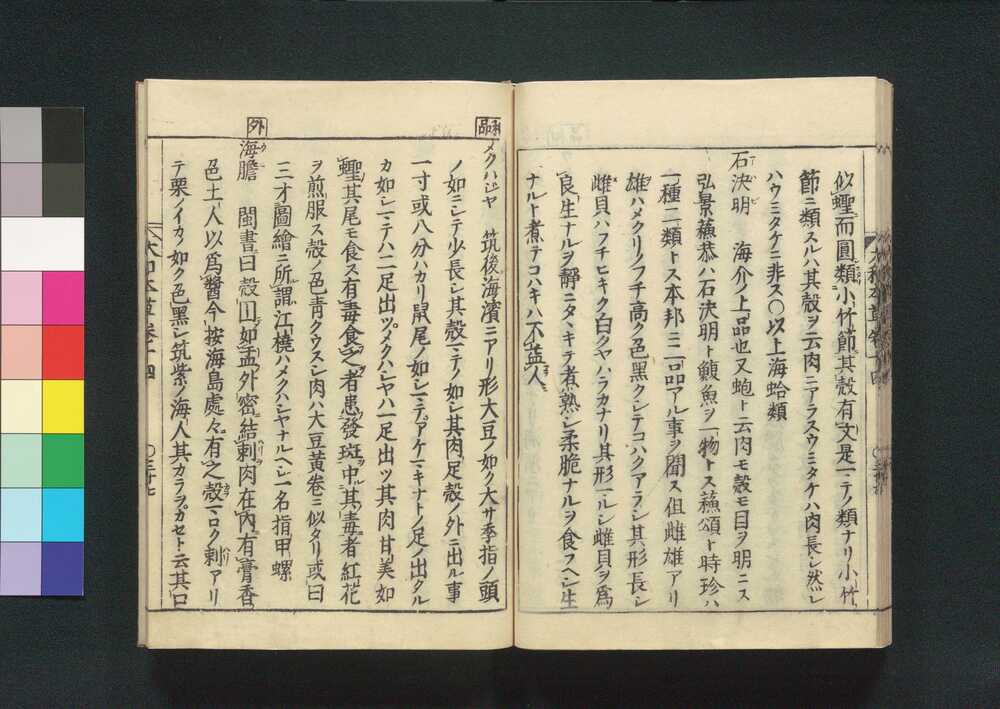 似蟶而圓類小竹節其殻有文是一テノ類ナリ小竹
節ニ類スルハ其殻ヲ云肉ニアラスウミタケハ肉長シ然レ
ハウミタケニ非ス〇以上海蛤類
石決明 海介ノ上品也又鮑ト云肉モ殻モ目ヲ明ニス
弘景蘓恭ハ石決明ト鰒魚ヲ一物トス蘓頌ト時珍ハ
一種二類トス本邦ニ二品アル事ヲ聞ス但雌雄アリ
雄ハメクリノフチ高ク色黑クシテコハクアラシ其形長シ
雌貝ハフチヒキク白クヤハラカナリ其形マルシ雌貝ヲ為
良生ナルヲ靜ニタヽキテ煮熟シ柔脆ナルヲ食フヘシ生
ナルト煮テコハキハ不益人
大和本草卷十四
和品
メクハジヤ 筑後海濱ニアリ形大豆ノ如ク大サ季指ノ頭
ノ如ニシテ少長シ其殻マテノ如シ其肉足殻ノ外ニ出ル事
一寸或八分ハカリ鼠尾ノ如シミテアケマキナトノ足ノ出タル
カ如シマテハ二足出ツメクハシヤハ一足出ツ其肉甘美如
蟶其尾モ食ス有毒食之者患發斑中其毒者紅花
ヲ煎服ス殻ノ色青クウスシ肉ハ大豆黄卷ニ似タリ或曰
三才圖繪ニ所謂江橈ハメクハシヤナルヘシ一名指甲螺
外
海膽 閩書曰殻圓如盂外密結刺肉在内有膏香
色土人以為醤今按海島處々有之殻マロク刺アリ
テ栗ノイカノ如ク色黑シ筑紫ノ海人其カラヲカセト云其口
大和本草卷十四